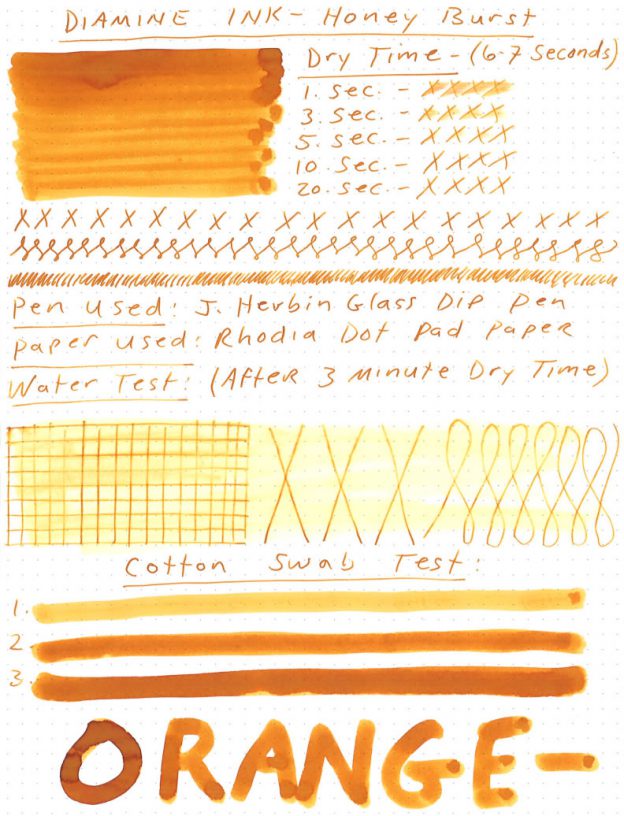 DIAMINE INK - Honey Burst
Dry Time - (6-7 Seconds)
1. Sec. - XXXX
3. Sec. - XXXX
5. Sec. - XXXX
10. Sec. - XXXX
20. Sec. - XXXX
X X X X X X X X X X X X X X X X X X X X
Pen Used: J. Herbin Glass Dip Pen
Paper Used: Rhodia Dot Pad Paper
Water Test: (After 3 Minute Dry Time)
Cotton Swab Test:
1.
2
3
ORANGE-